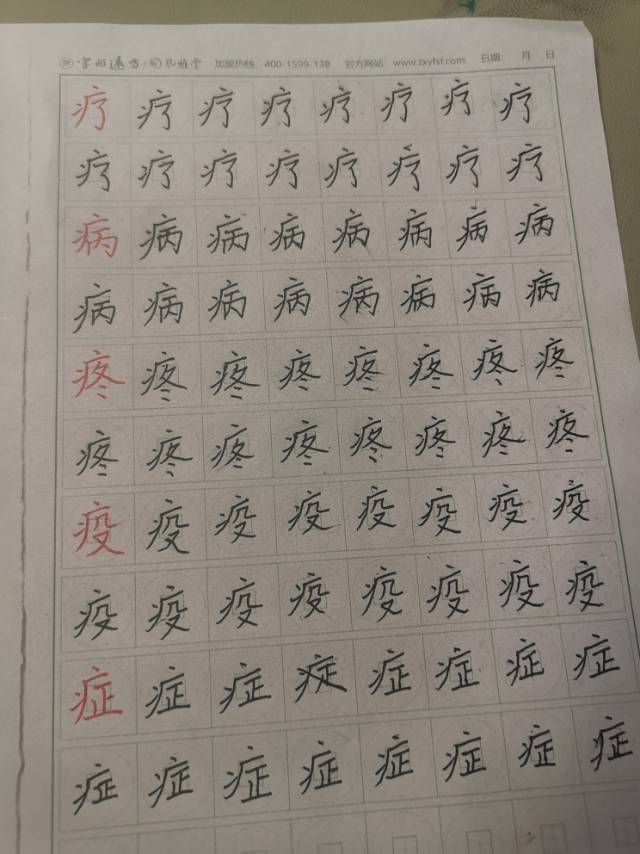 字问远方 加盟热线: 400-1599-138 官方网站: www.zxyfsf.com 日期: 月 日
疗疗疗疗疗疗疗疗
疗疗疗疗疗疗疗疗
病病病病病病病病
病病病病病病病病
疼疼疼疼疼疼疼疼
疼疼疼疼疼疼疼疼
疫疫疫疫疫疫疫疫
疫疫疫疫疫疫疫疫
症症症症症症症
症症症症症症症症